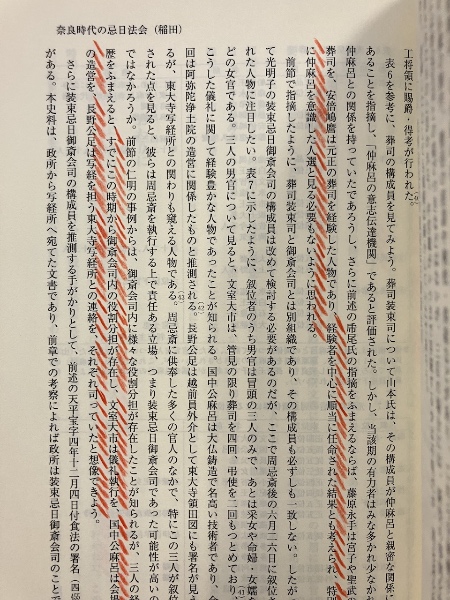 奈良時代の忌日法会（稲田）
工将領に賜爵・得考が行われた。
表6を参考に、葬司の構成員を見てみよう。葬司装束司について山本氏は、その構成員が仲麻呂と親密な関係に
あることを指摘し、「仲麻呂の意志伝達機関」であると評価された。しかし、当該期の有力者はみな多かれ少なかれ
仲麻呂との関係を持っていたであろうし、さらに前述の盾尾氏の指摘をふまえるならば、藤原永手は宮子や聖武の
葬司を、安倍嶋麿は元正の葬司を経験した人物であり、経験者を中心に順当に任命された結果とも考えられ、特別
に仲麻呂を意識した人選と見る必要もないように思われる。
前節で指摘したように、葬司装束司と御斎会司とは別組織であり、その構成員も必ずしも一致しない。したが
て光明子の装束忌日御斎会司の構成員は改めて検討する必要があるのだが、ここで周忌斎後の六月二六日に叙位
れた人物に注目したい。表7に示したように、叙位者のうち男官は冒頭の三人のみで、あとは采女や命婦・女孺な
どの女官である。三人の男官について見ると、文室大市は、管見の限り葬司を四回、弔使を二回もつとめており、(41)
こうした儀礼に関して経験豊かな人物であったことが知られる。国中公麻呂は大仏鋳造で名高い技術者であり、今
回は阿弥陀浄土院の造営に関係したものと推測される。(42)長野公足は越前員外介として東大寺領田図にも署名が見え
るが、東大寺写経所との関わりも窺える人物である。(43)周忌斎に供奉した多くの官人のなかで、特にこの三人が叙位
された点を見ると、彼らは周忌斎を執行する上で責任ある立場、つまり装束忌日御斎会司であった可能性が高いの
ではなかろうか。前節の仁明の事例からは、御斎会司内に様々な役割分担が存在したことが知られるが、三人の経
歴をふまえると、すでにこの時期から御斎会司内の役割分担が存在し、文室大市は儀礼執行を、国中公麻呂は会場
の造営を、長野公足は写経を担う東大寺写経所との連絡を、それぞれ司っていたと想像できよう。
さらに装束忌日御斎会司の構成員を推測する手がかりとして、前述の天平宝字四年十二月四日付食法の署名（四
がある。本史料は、政所から写経所へ宛てた文書であり、前章での考察によれば政所は装束忌日御斎会司のことで